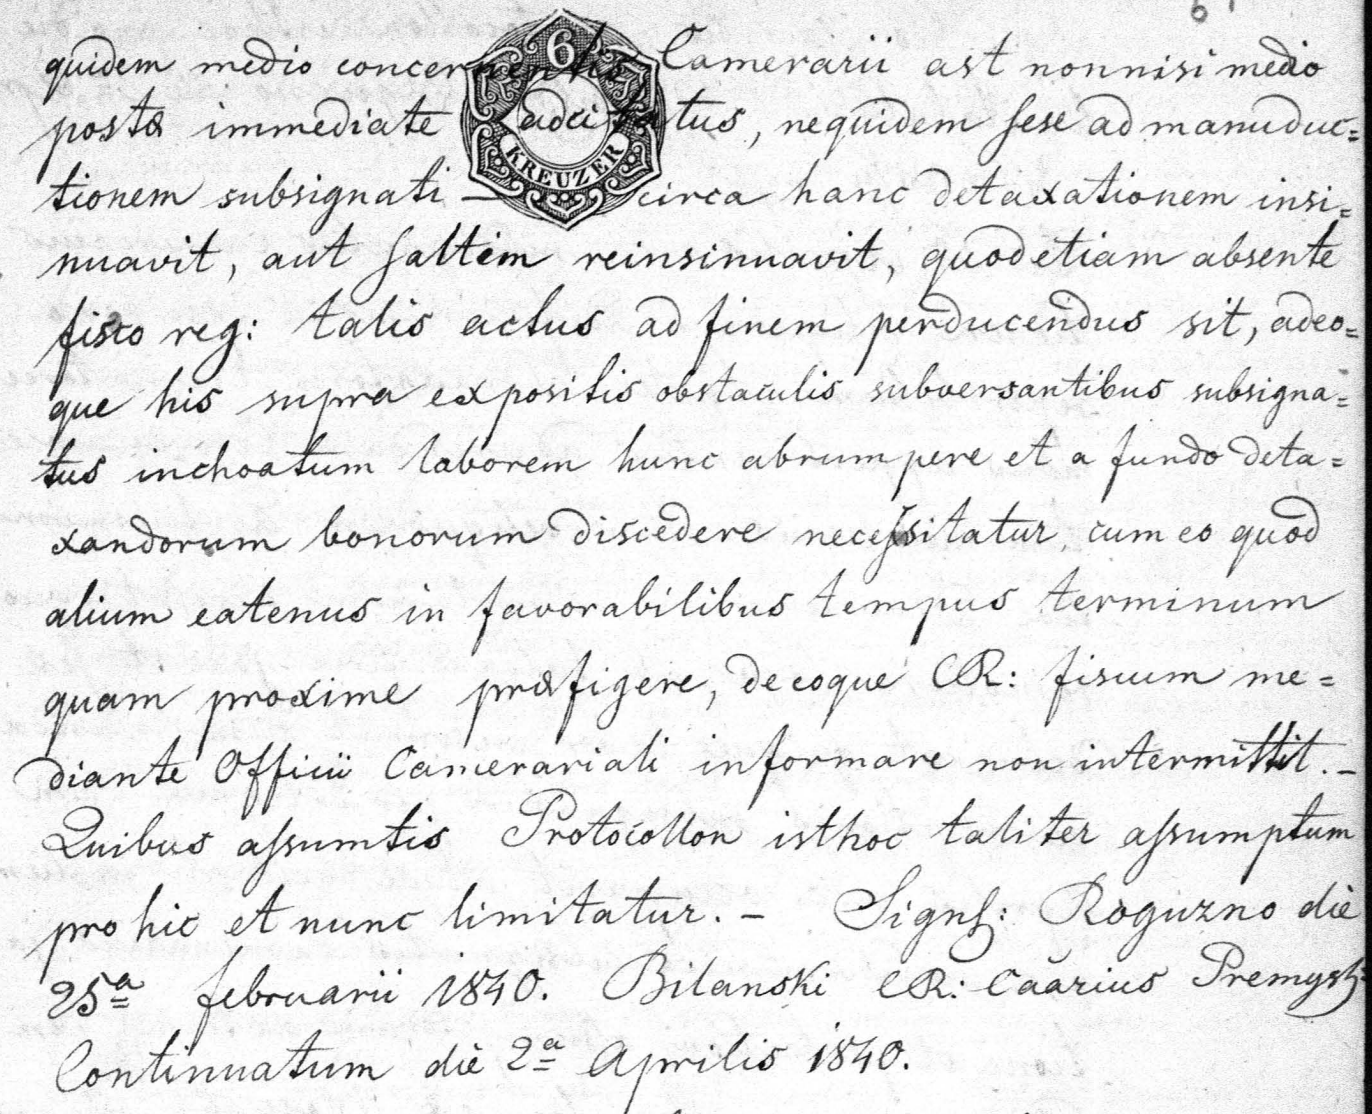 6
quidem medio concernentis Camerarii ast nonnisi medio
6
postæ immediate adcitatus, nequidem sese ad manuduc=
KREUZER
tionem subsignati — circa hanc detaxationem insi=
nuavit, aut saltem reinsinuavit, quod etiam absente
fisco reg: talis actus ad finem perducendus sit, adeo=
que his supra expositis obstaculis subversantibus subsigna=
tus inchoatum laborem hunc abrumpere et a fundo deta=
xandorum bonorum discedere necessitatur, cum eo quod
alium eatenus in favorabilibus tempus terminum
quam proxime præfigere, de eoque CR: fiscum me=
diante Officii Camerariali informare non intermittit. –
Quibus assumtis Protocollon isthoc taliter assumptum
pro hic et nunc limitatur. – Signs: Roguzno die
25ª februarii 1840. Bilanski CR: Caarius Premysl:
Continuatum die 2ª Aprilis 1840.